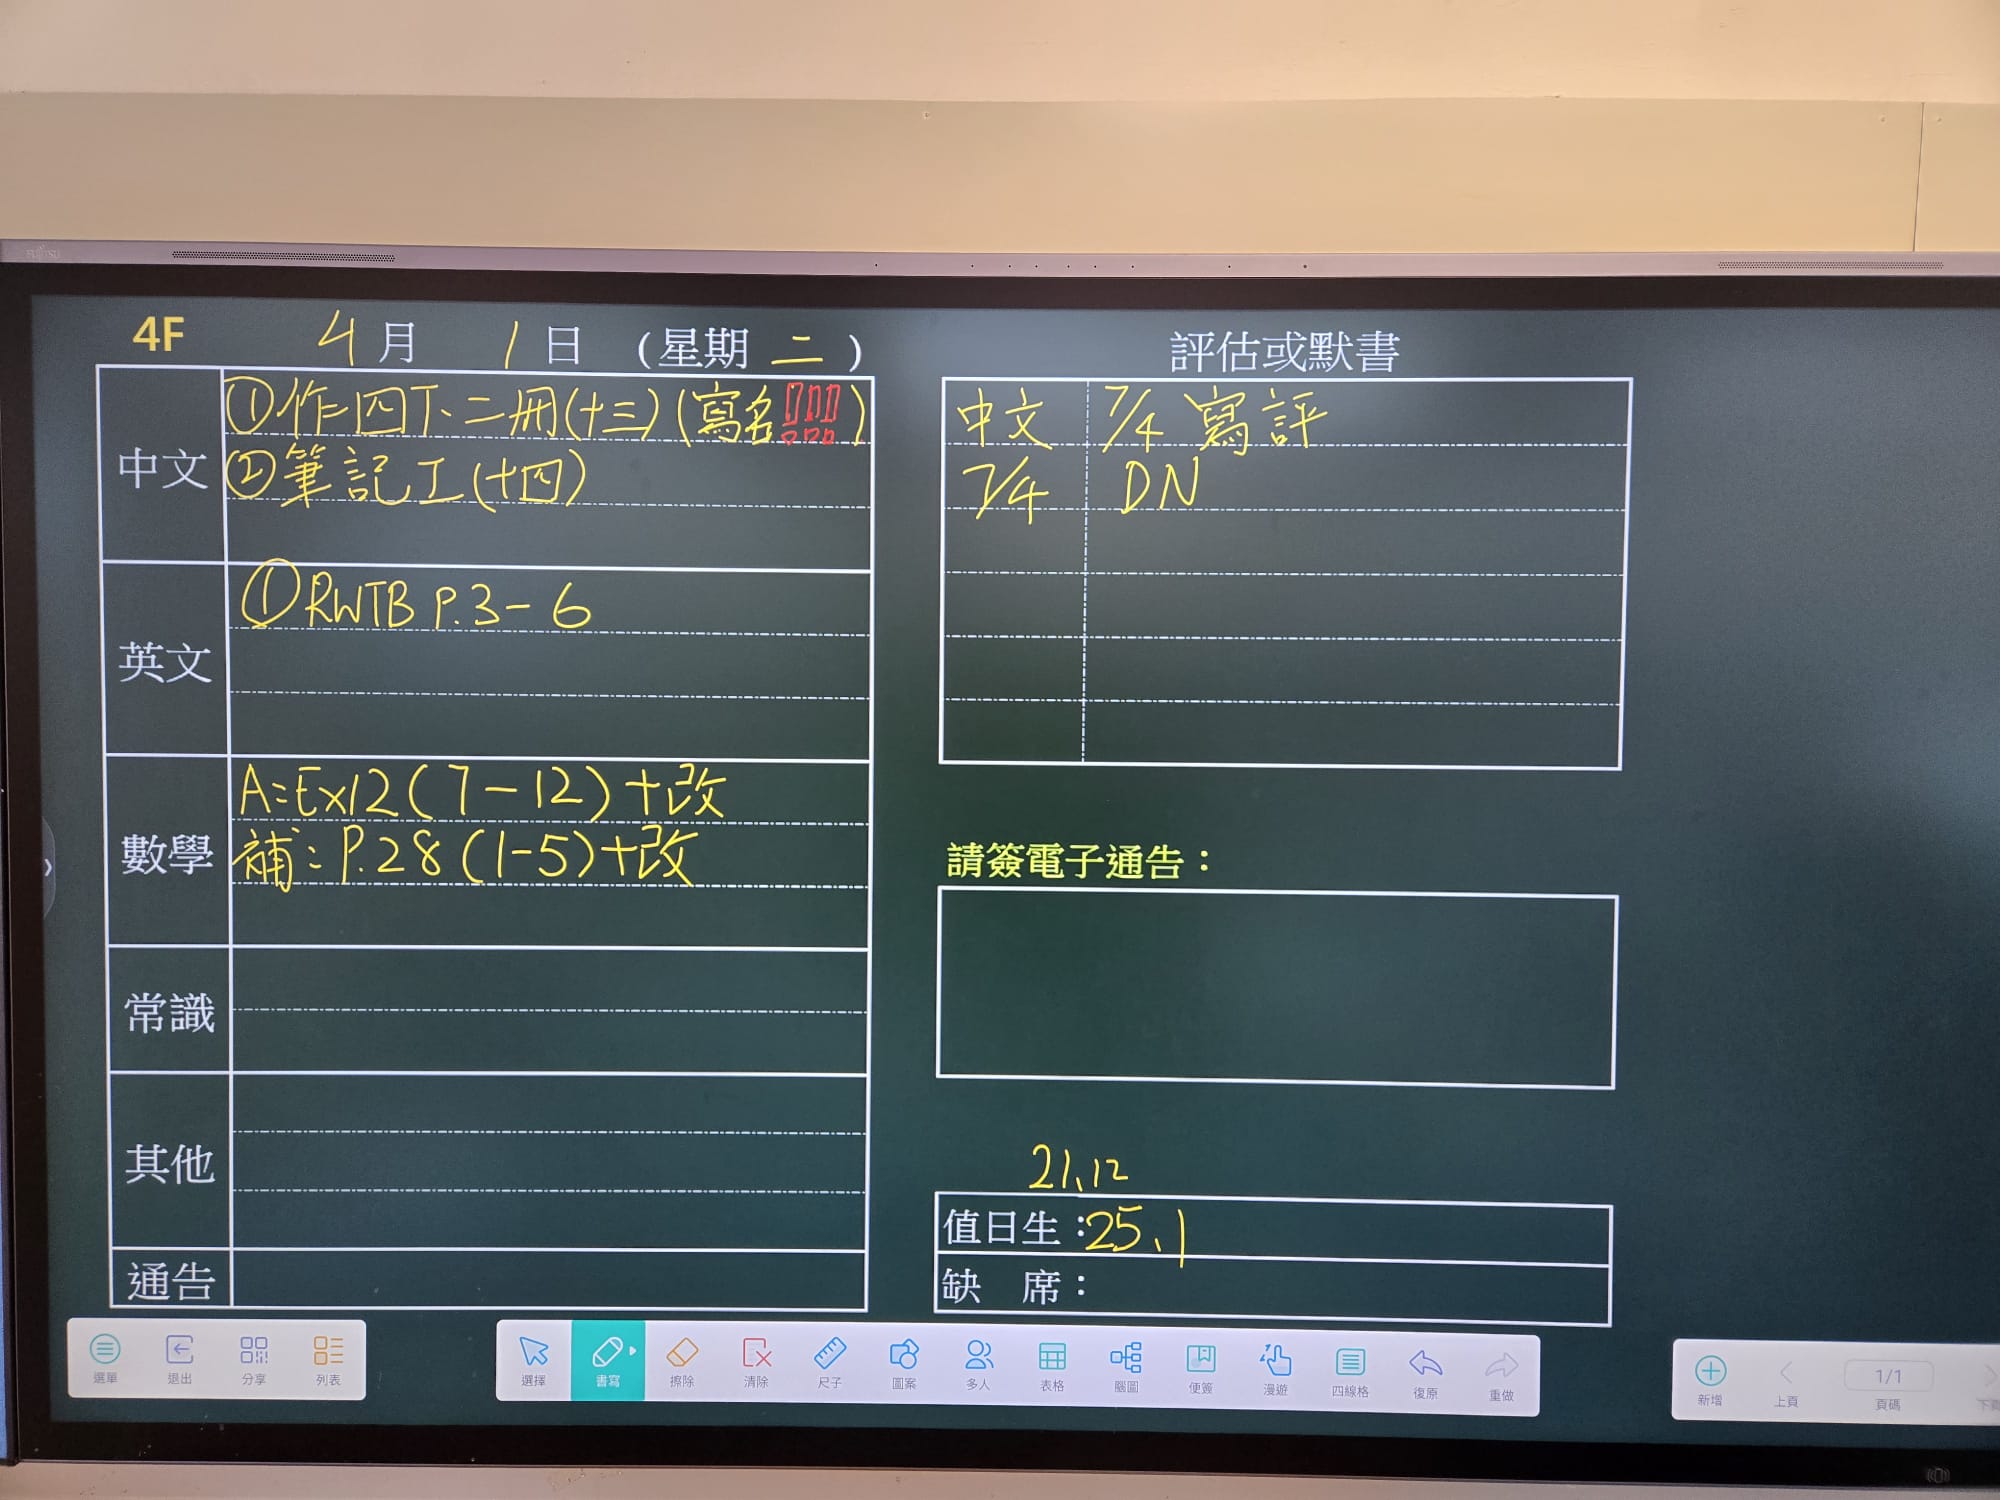 FUJITSU
4F 4月 1日 (星期二)
中文
①作四下二冊(十三)(寫名!!!)
②筆記工(十四)
英文
①RWTB P.3-6
數學
A:Ex12(7-12)+改
補:P.28(1-5)+改
常識
其他
通告
評估或默書
中文 7/4 寫評
7/4 DN
請簽電子通告：
21、12
值日生：25、1
缺 席：
選單 退出 分享 列表
選擇 書寫 擦除 清除 尺子 圖案 多人 表格 腦圖 便簽 漫遊 四線格 復原 重做
新增 上頁 1/1 頁碼